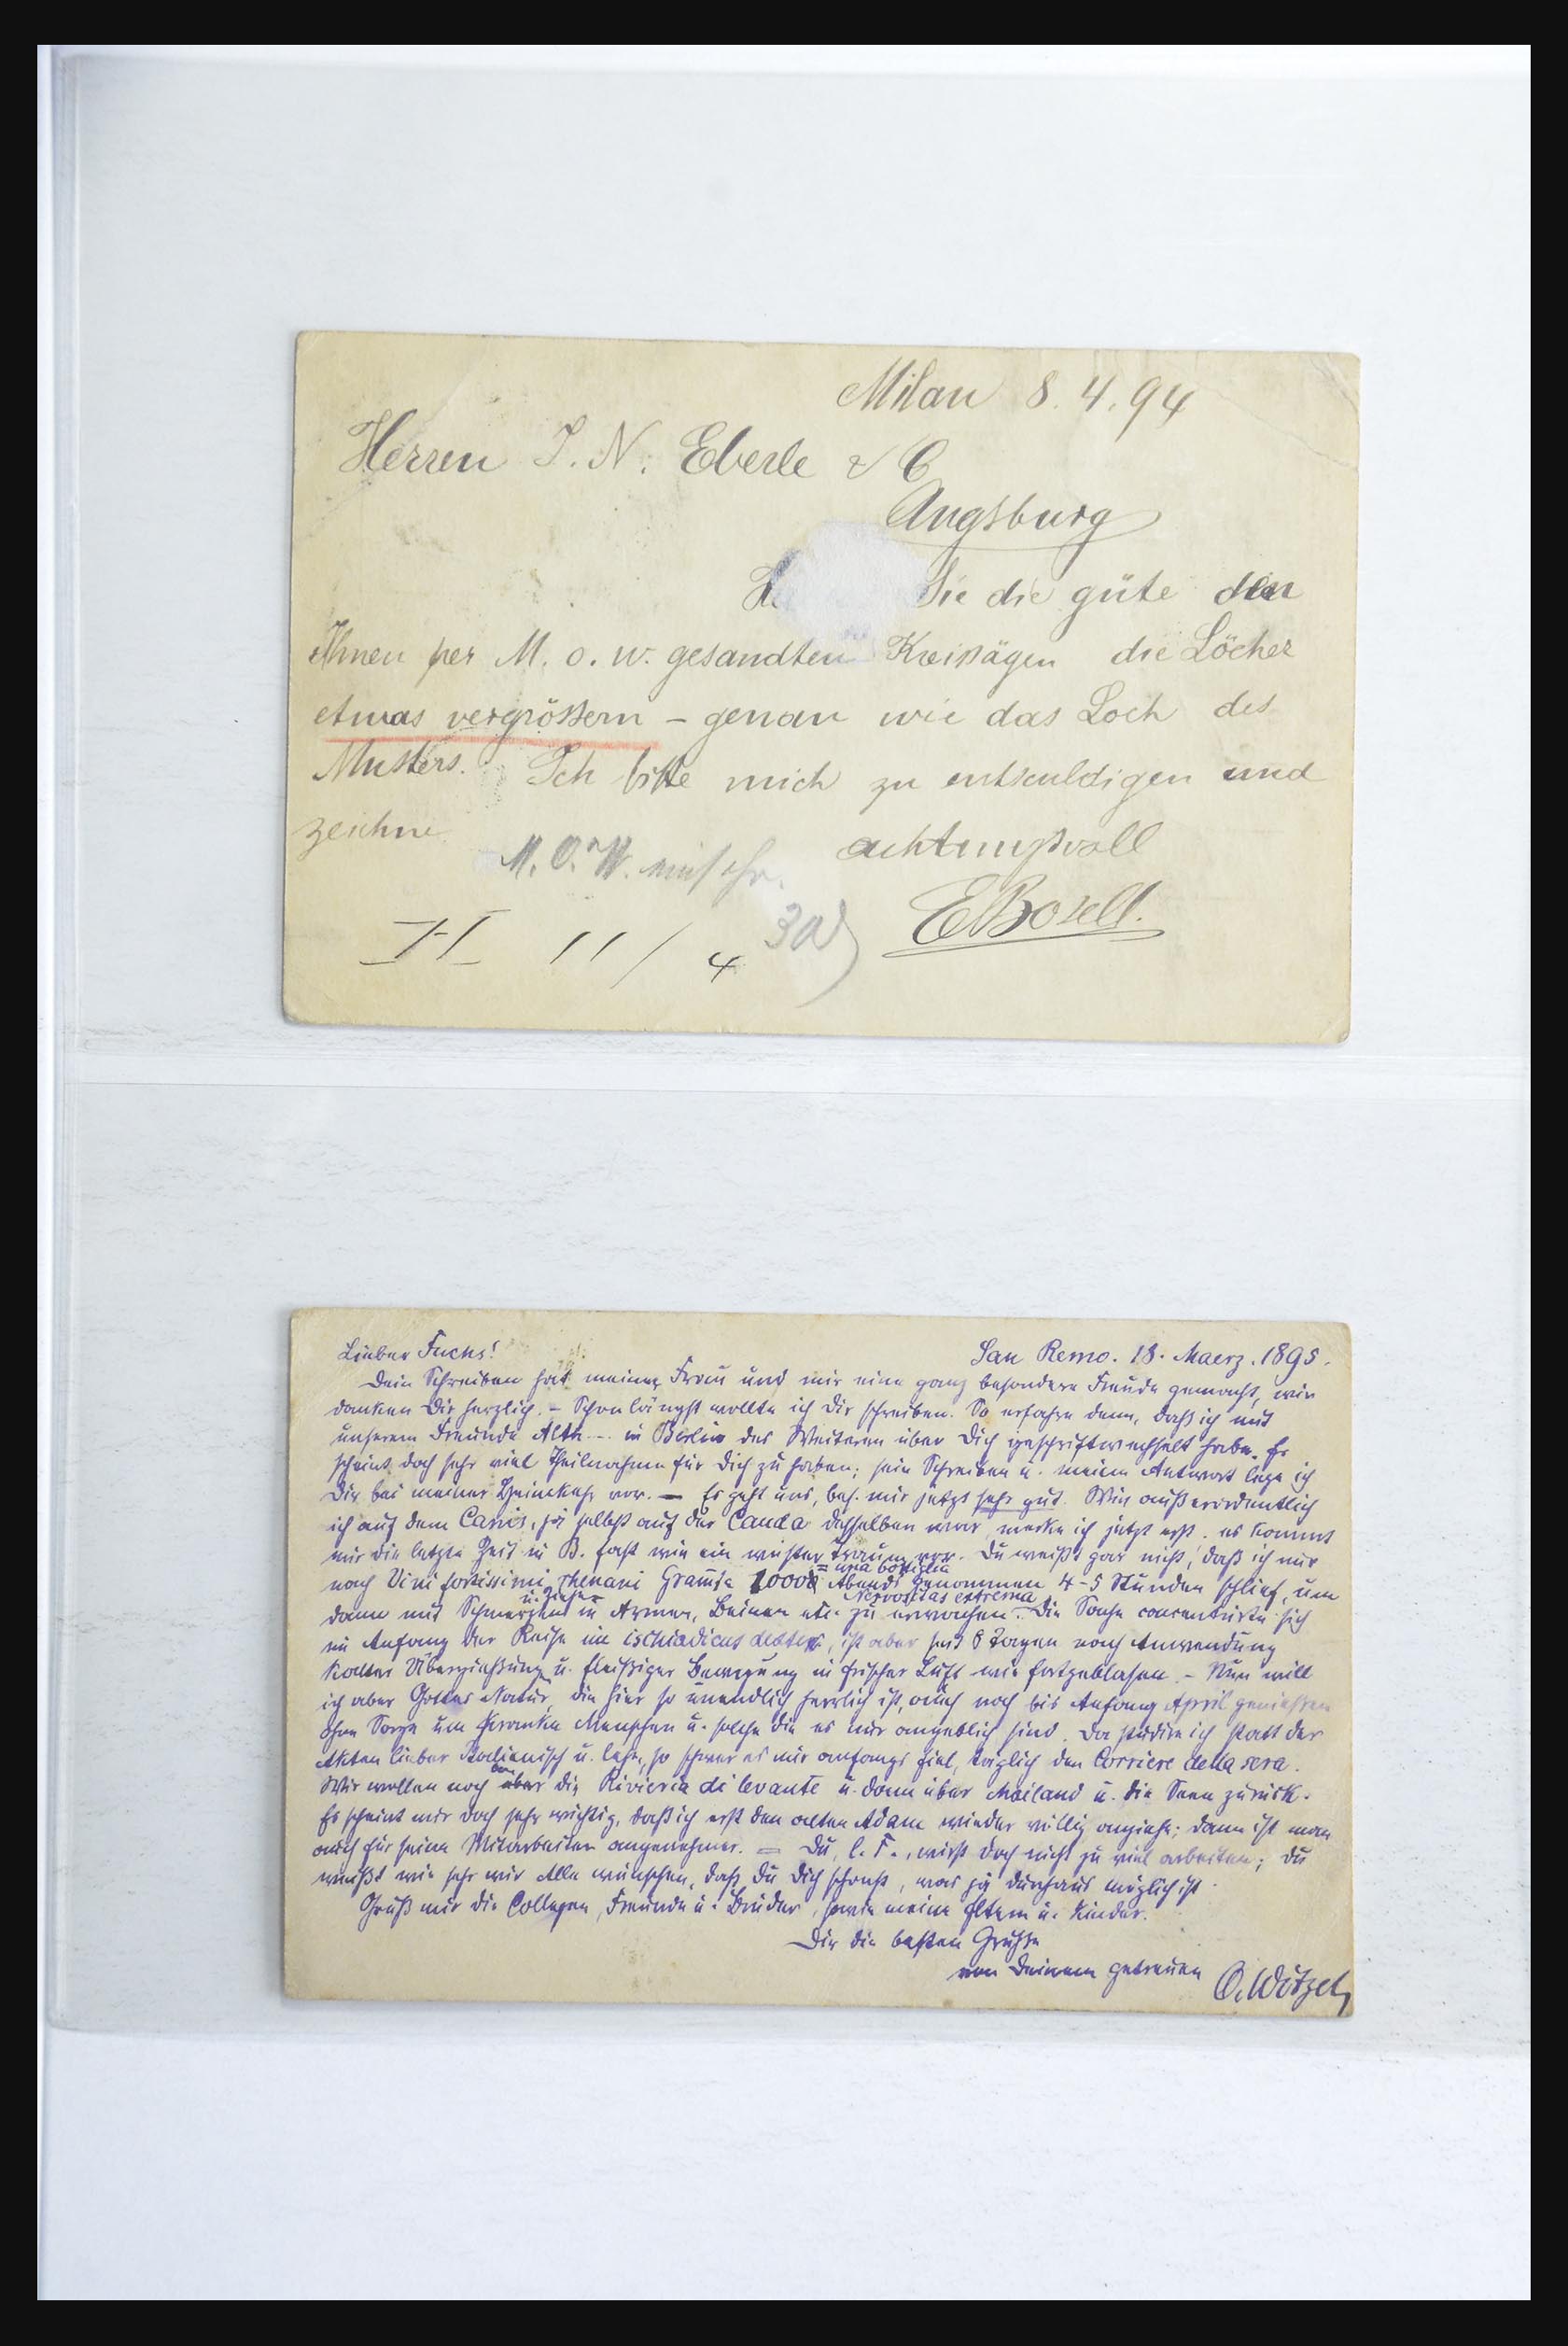 Milan 8.4.94
Herren J. N. Eberle & C
Augsburg
Sie die güte den
Ihnen per M. o. w. gesandten Kreissägen die Löcher
etwas vergrössern – genau wie das Loch des
Musters. Ich bitte mich zu entsculdigen und
zeichne
achtungsvoll
M. O. W.
E Bosell.
II 11/4
Lieber Fuchs! San Remo. 18. Maerz. 1895.
Dein Schreiben hat meiner Frau und mir eine ganz besondere Freude gemacht, wir
danken Dir herzlich. – Schon längst wollte ich Dir schreiben. So erfahre denn, daß ich mit
unserem Freunde Alth... in Berlin des Weiteren über Dich geschriftwechselt habe. Er
scheint doch sehr viel Theilnahme für Dich zu haben; sein Schreiben u. meine Antwort lege ich
Dir bei meiner Heimkehr vor. – Es geht uns, bes. mir jetzt sehr gut. Wie außerordentlich
ich auf dem Canis, ja selbst auf der Cauda desselben war, merke ich jetzt erst. es kommt
mir die letzte Zeit in B. fast wie ein wüster Traum vor. Du weißt gar nicht, daß ich nur
= una bottiglia
nach Vini fortissimi rhenani Gramm 1000 Abends genommen 4-5 Stunden schlief, um
Nervositas extrema
dann mit Schmerzen in Armen, Beinen etc. zu erwachen. Die Sache concentrirte sich
im Anfang der Reise im ischiadicus, ist aber seit 8 Tagen nach Anwendung
kalter Übergießung u. fleißiger Bewegung in frischer Luft wie fortgeblasen. – Nun will
ich aber Gottes Natur, die hier so unendlich herrlich ist, auch noch bis Anfang April genießen
ohne Sorge um kranke Menschen u. solche die es nur angeblich sind. Da studire ich statt der
Akten lieber Italienisch u. lese, so schwer es mir anfangs fiel, täglich den Corriere della sera.
Wir wollen noch die Riviera di levante u. dann über Mailand u. die Seen zurück.
Es scheint mir doch sehr wichtig, daß ich erst den alten Adam wieder völlig anziehe; dann ist man
auch für seine Mitarbeiter angenehmer. = Du, l. F., wirst doch nicht zu viel arbeiten; Du
weißt wie sehr wir Alle wünschen, daß Du Dich schonst, was ja durchaus möglich ist.
Grüß mir die Collegen, Freunde u. Brüder, sowie meine Eltern u. Kinder.
Dir die besten Grüße
von Deinem getreuen O. Witzel